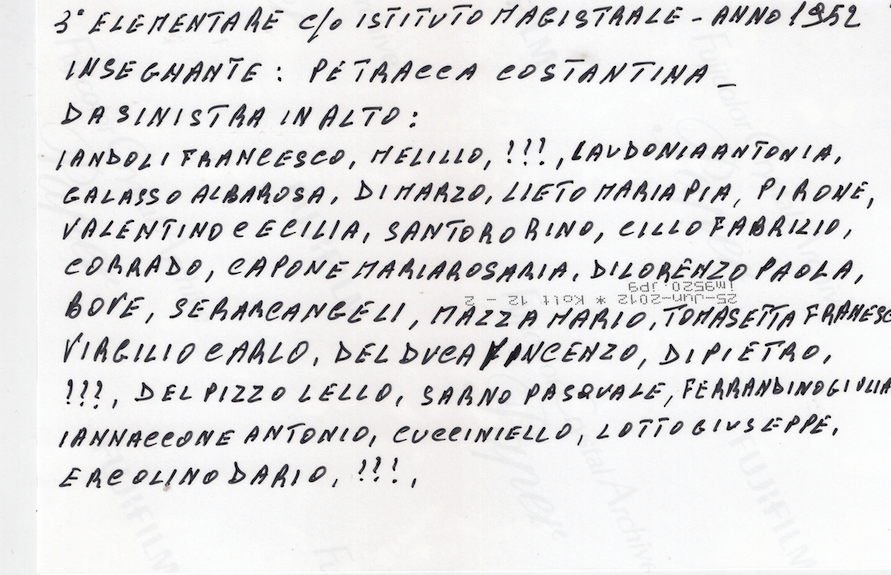 3° ELEMENTARE c/o ISTITUTO MAGISTRALE - ANNO 1952
INSEGNANTE : PETRACCA COSTANTINA _
DA SINISTRA IN ALTO :
IANDOLI FRANCESCO, MELILLO, !!!, LAUDONIA ANTONIA,
GALASSO ALBAROSA, DI MARZO, LIETO MARIA PIA, PIRONE,
VALENTINO CECILIA, SANTORO RINO, CILLO FABRIZIO,
CORRADO, CAPONE MARIAROSARIA, DI LORENZO PAOLA,
im9520.JPG
25-Jun-2012 * Kolt 12 - 2
BOVE, SERARCANGELI, MAZZA MARIO, TOMASETTA FRANESC
VIRGILIO CARLO, DEL DUCA VINCENZO, DI PIETRO,
!!!, DEL PIZZO LELLO, SARNO PASQUALE, FERRANDINO GIULIA
IANNACCONE ANTONIO, CUCCINIELLO, LOTTO GIUSEPPE,
ERCOLINO DARIO, !!!,
FUJIFILM